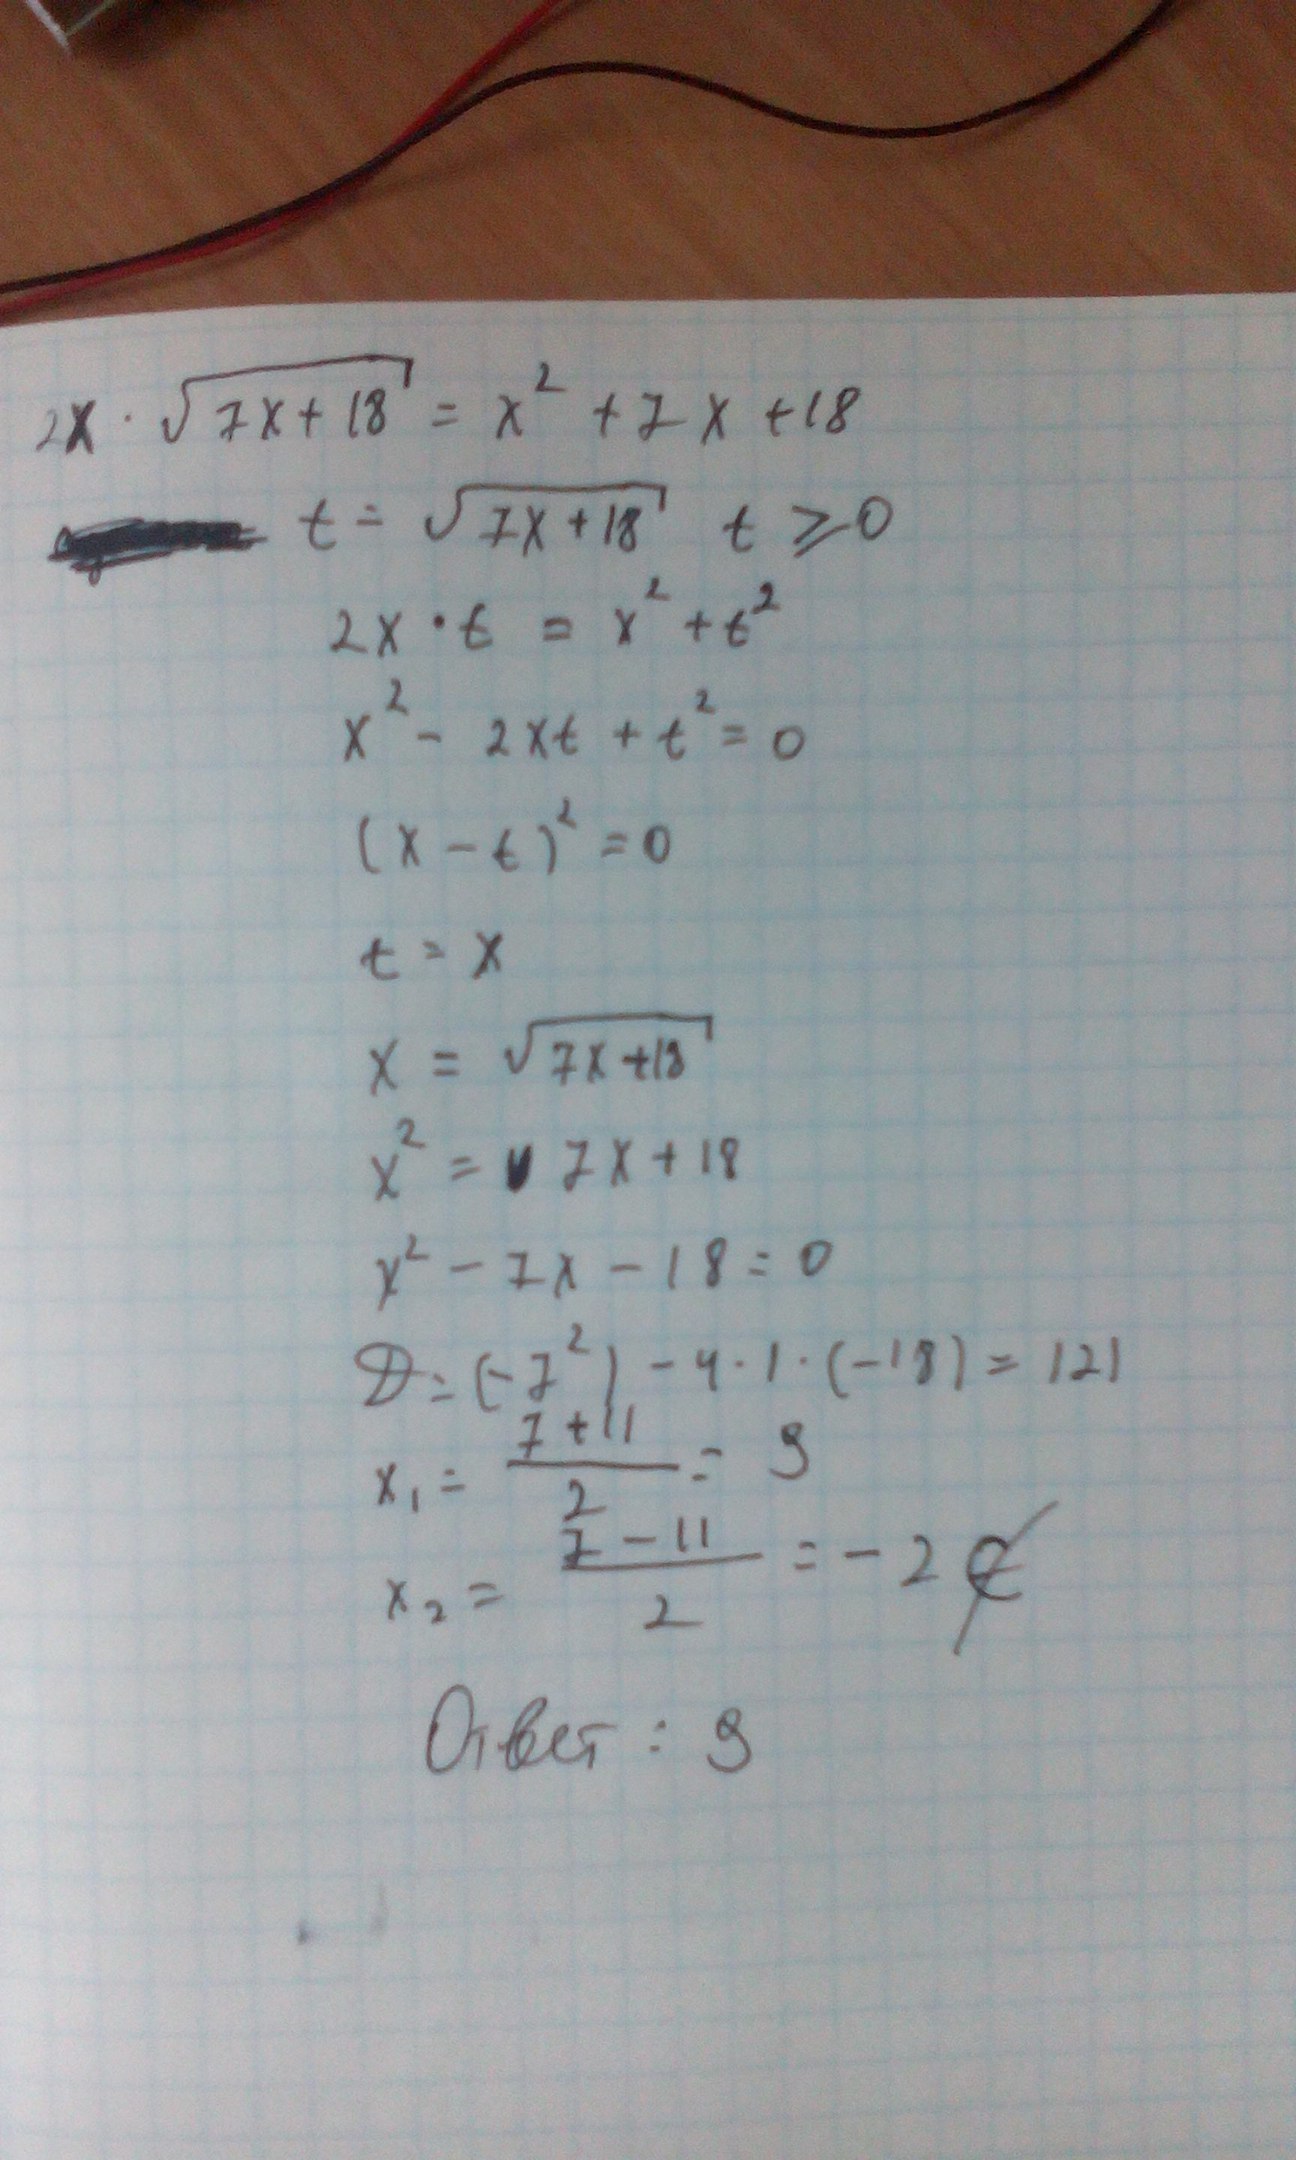 2x · √7x+18 = x² + 7x +18
t = √7x+18 t ⩾ 0
2x · t = x² + t²
x² - 2xt + t² = 0
(x - t)² = 0
t = x
x = √7x+18
x² = 7x+18
x² - 7x - 18 = 0
D = (-7²) - 4·1·(-18) = 121
x₁ = (7+11)/2 = 9
x₂ = (7-11)/2 = -2 ∉
Ответ : 9